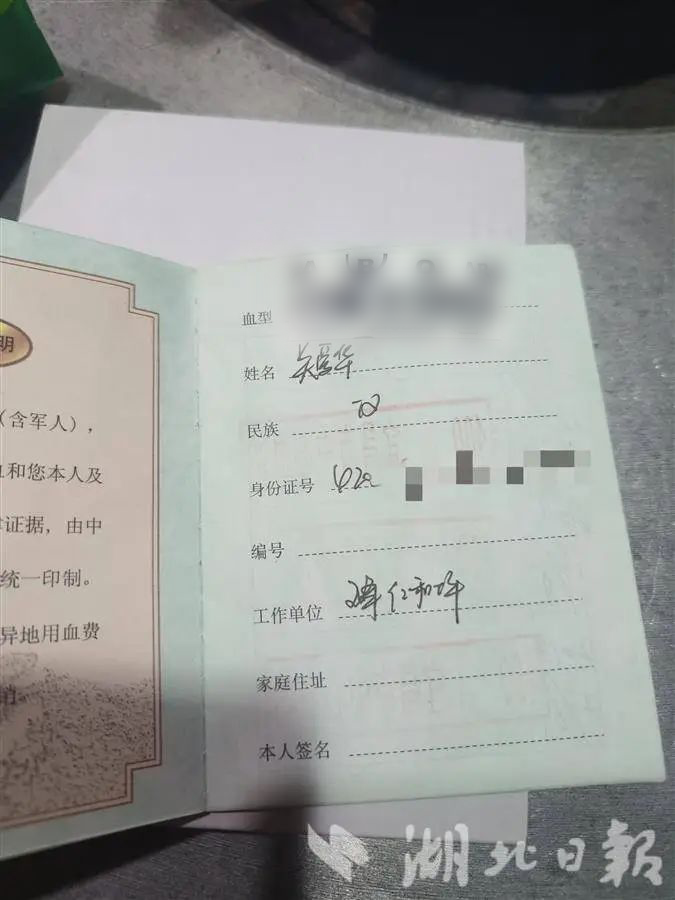 明
（含军人），
和您本人及
证据，由中
统一印制。
异地用血费
血型
姓名 吴医华
民族 汉
身份证号 420
编号
工作单位 仁和
家庭住址
本人签名
湖北日報